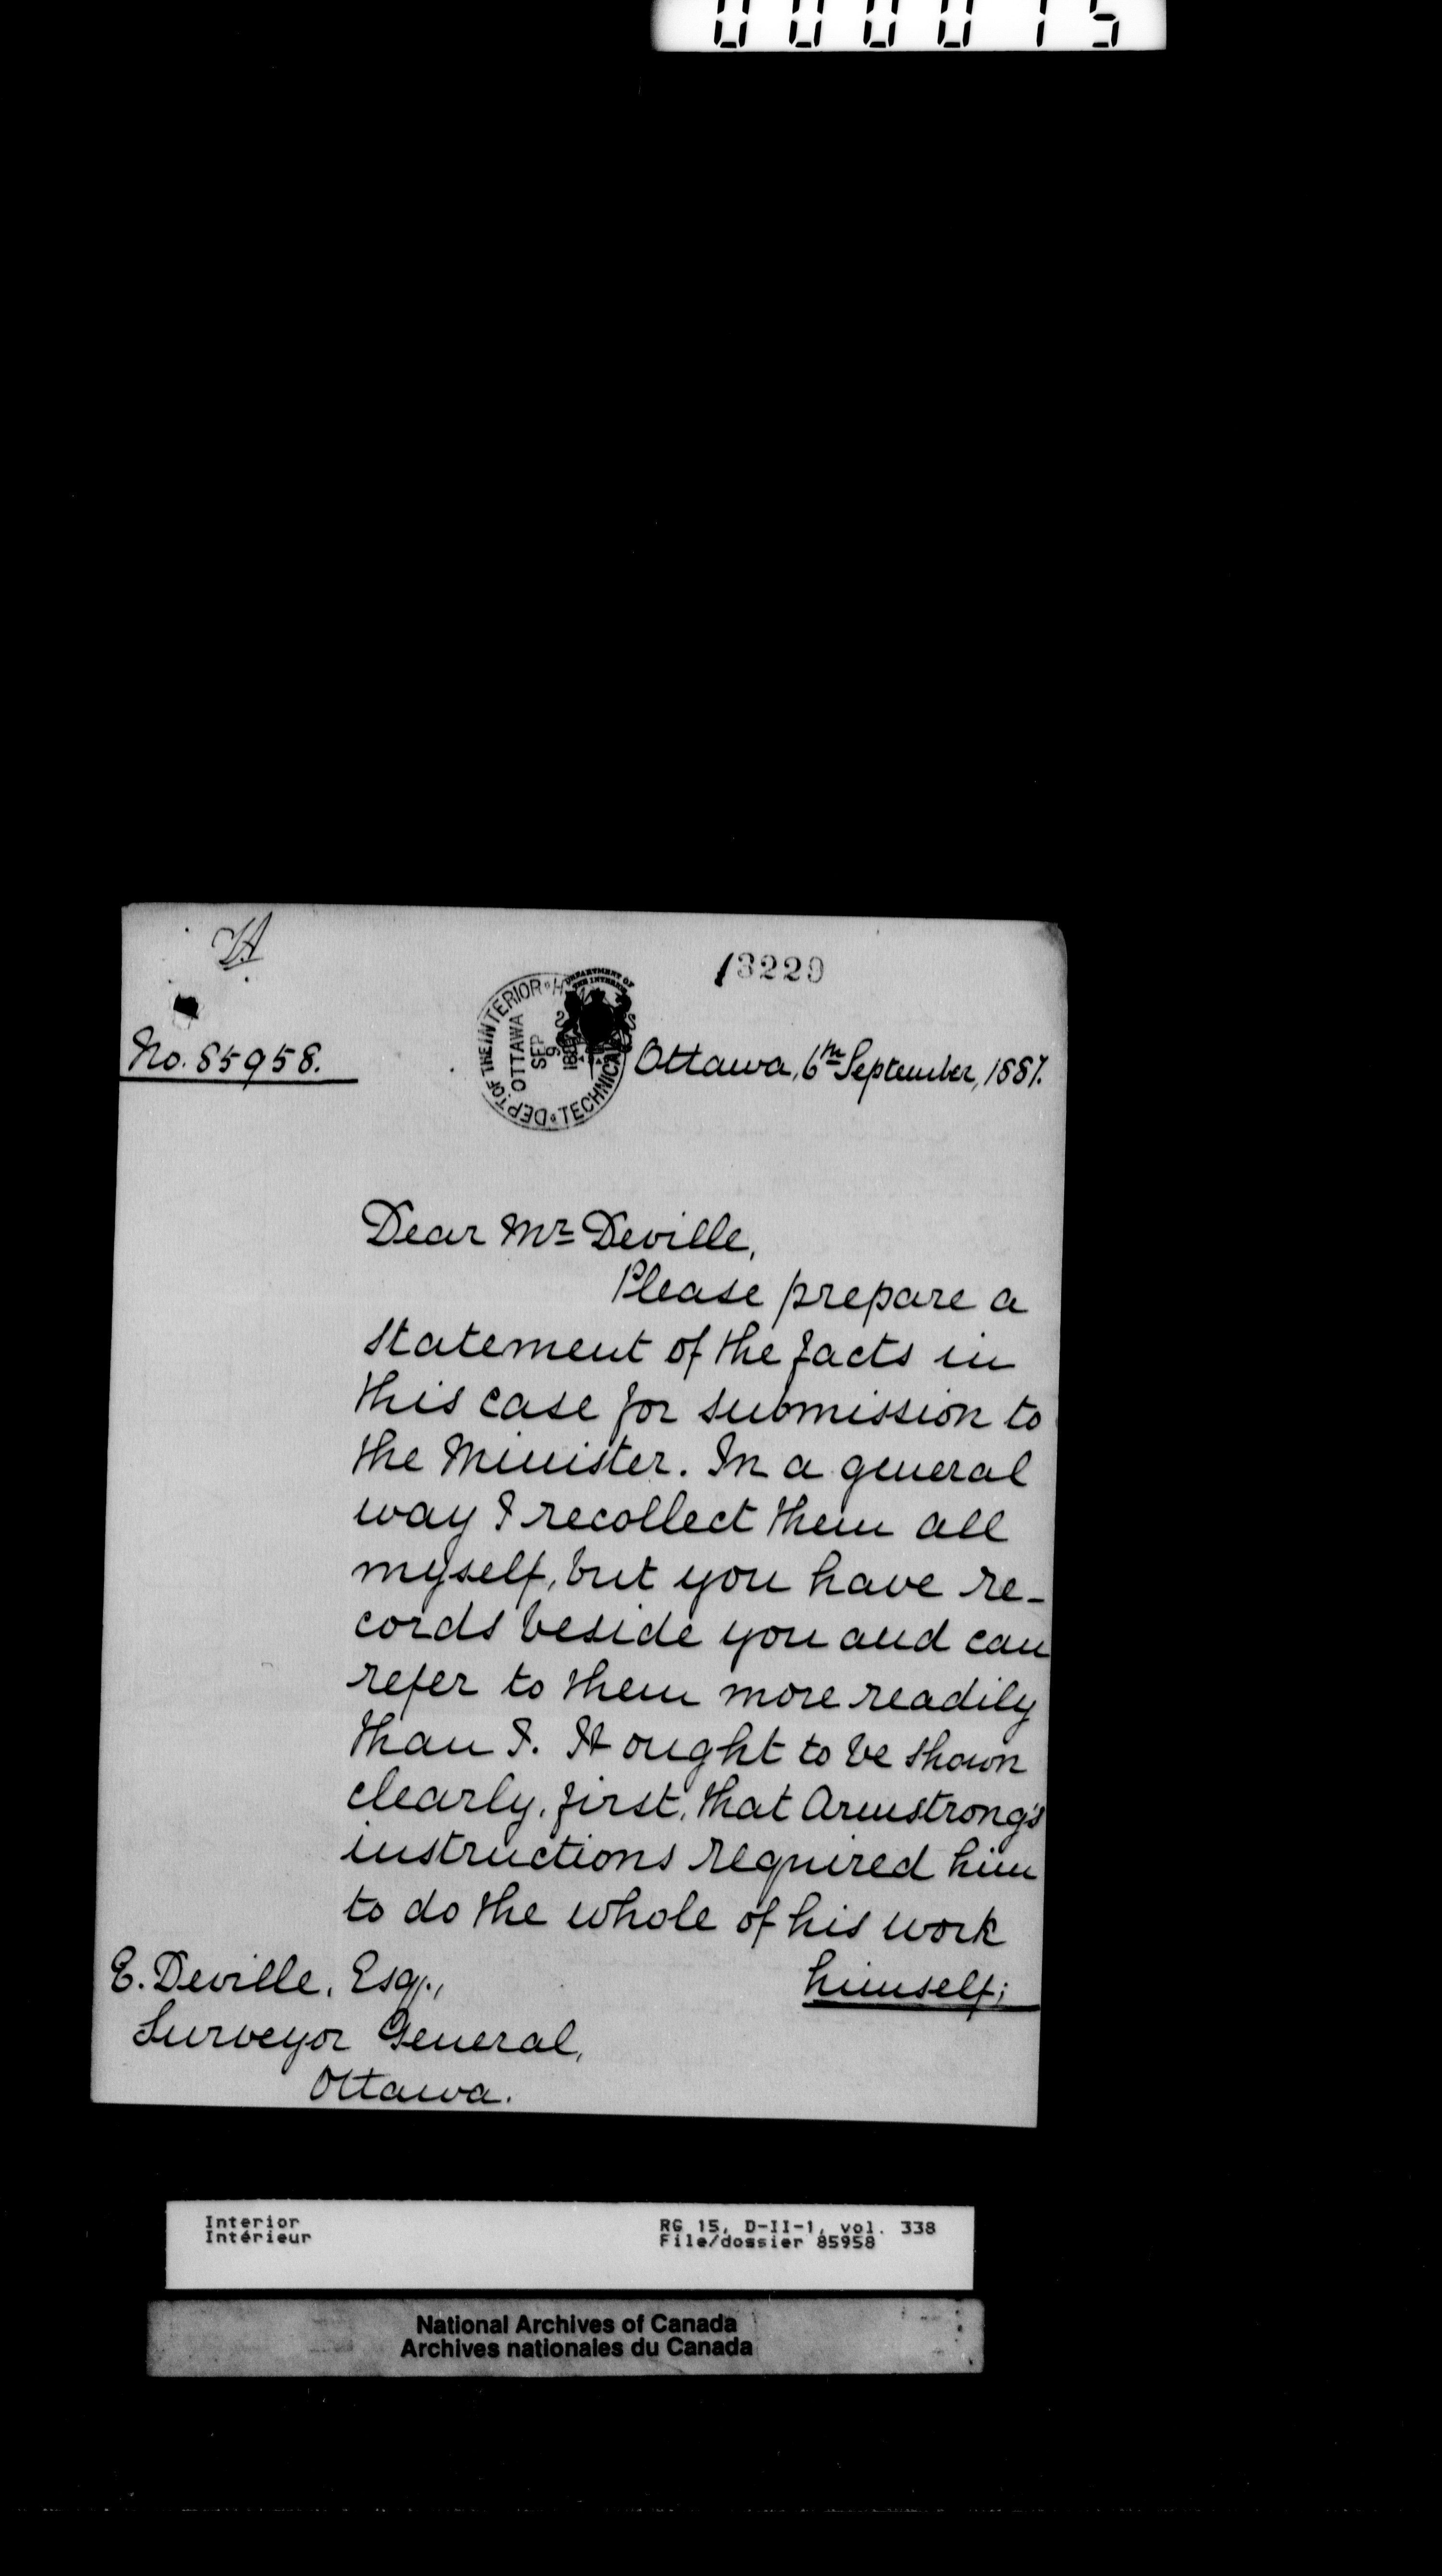 000015
13229
No. 85958.
DEPT. OF THE INTERIOR
TECHNICAL
OTTAWA
SEP
9
DEPARTMENT OF
THE INTERIOR
Ottawa, 6th September, 1887.
Dear Mr Deville,
Please prepare a
statement of the facts in
this case for submission to
the Minister. In a general
way I recollect them all
myself, but you have re-
cords beside you and can
refer to them more readily
than I. It ought to be shown
clearly, first, that Armstrong's
instructions required him
to do the whole of his work
himself;
E. Deville, Esq.,
Surveyor General,
Ottawa.
Interior
Intérieur
RG 15, D-II-1, vol. 338
File/dossier 85958
National Archives of Canada
Archives nationales du Canada